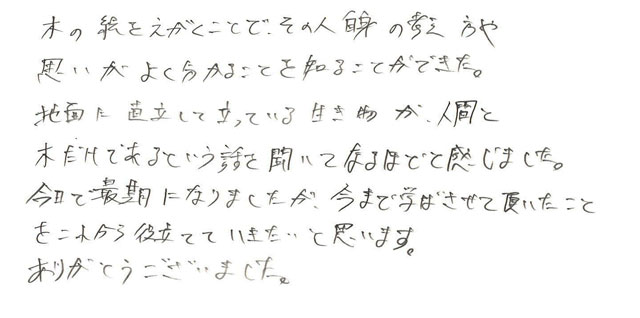 木の絵をえがくことで、その人自身の考え方や
思いがよく分かることを知ることができた。
地面に直立して立っている生き物が、人間と
木だけであるという話を聞いてなるほどと感じました。
今日で最期になりましたが、今まで学ばさせて頂いたこと
をこれから役立てていきたいと思います。
ありがとうございました。